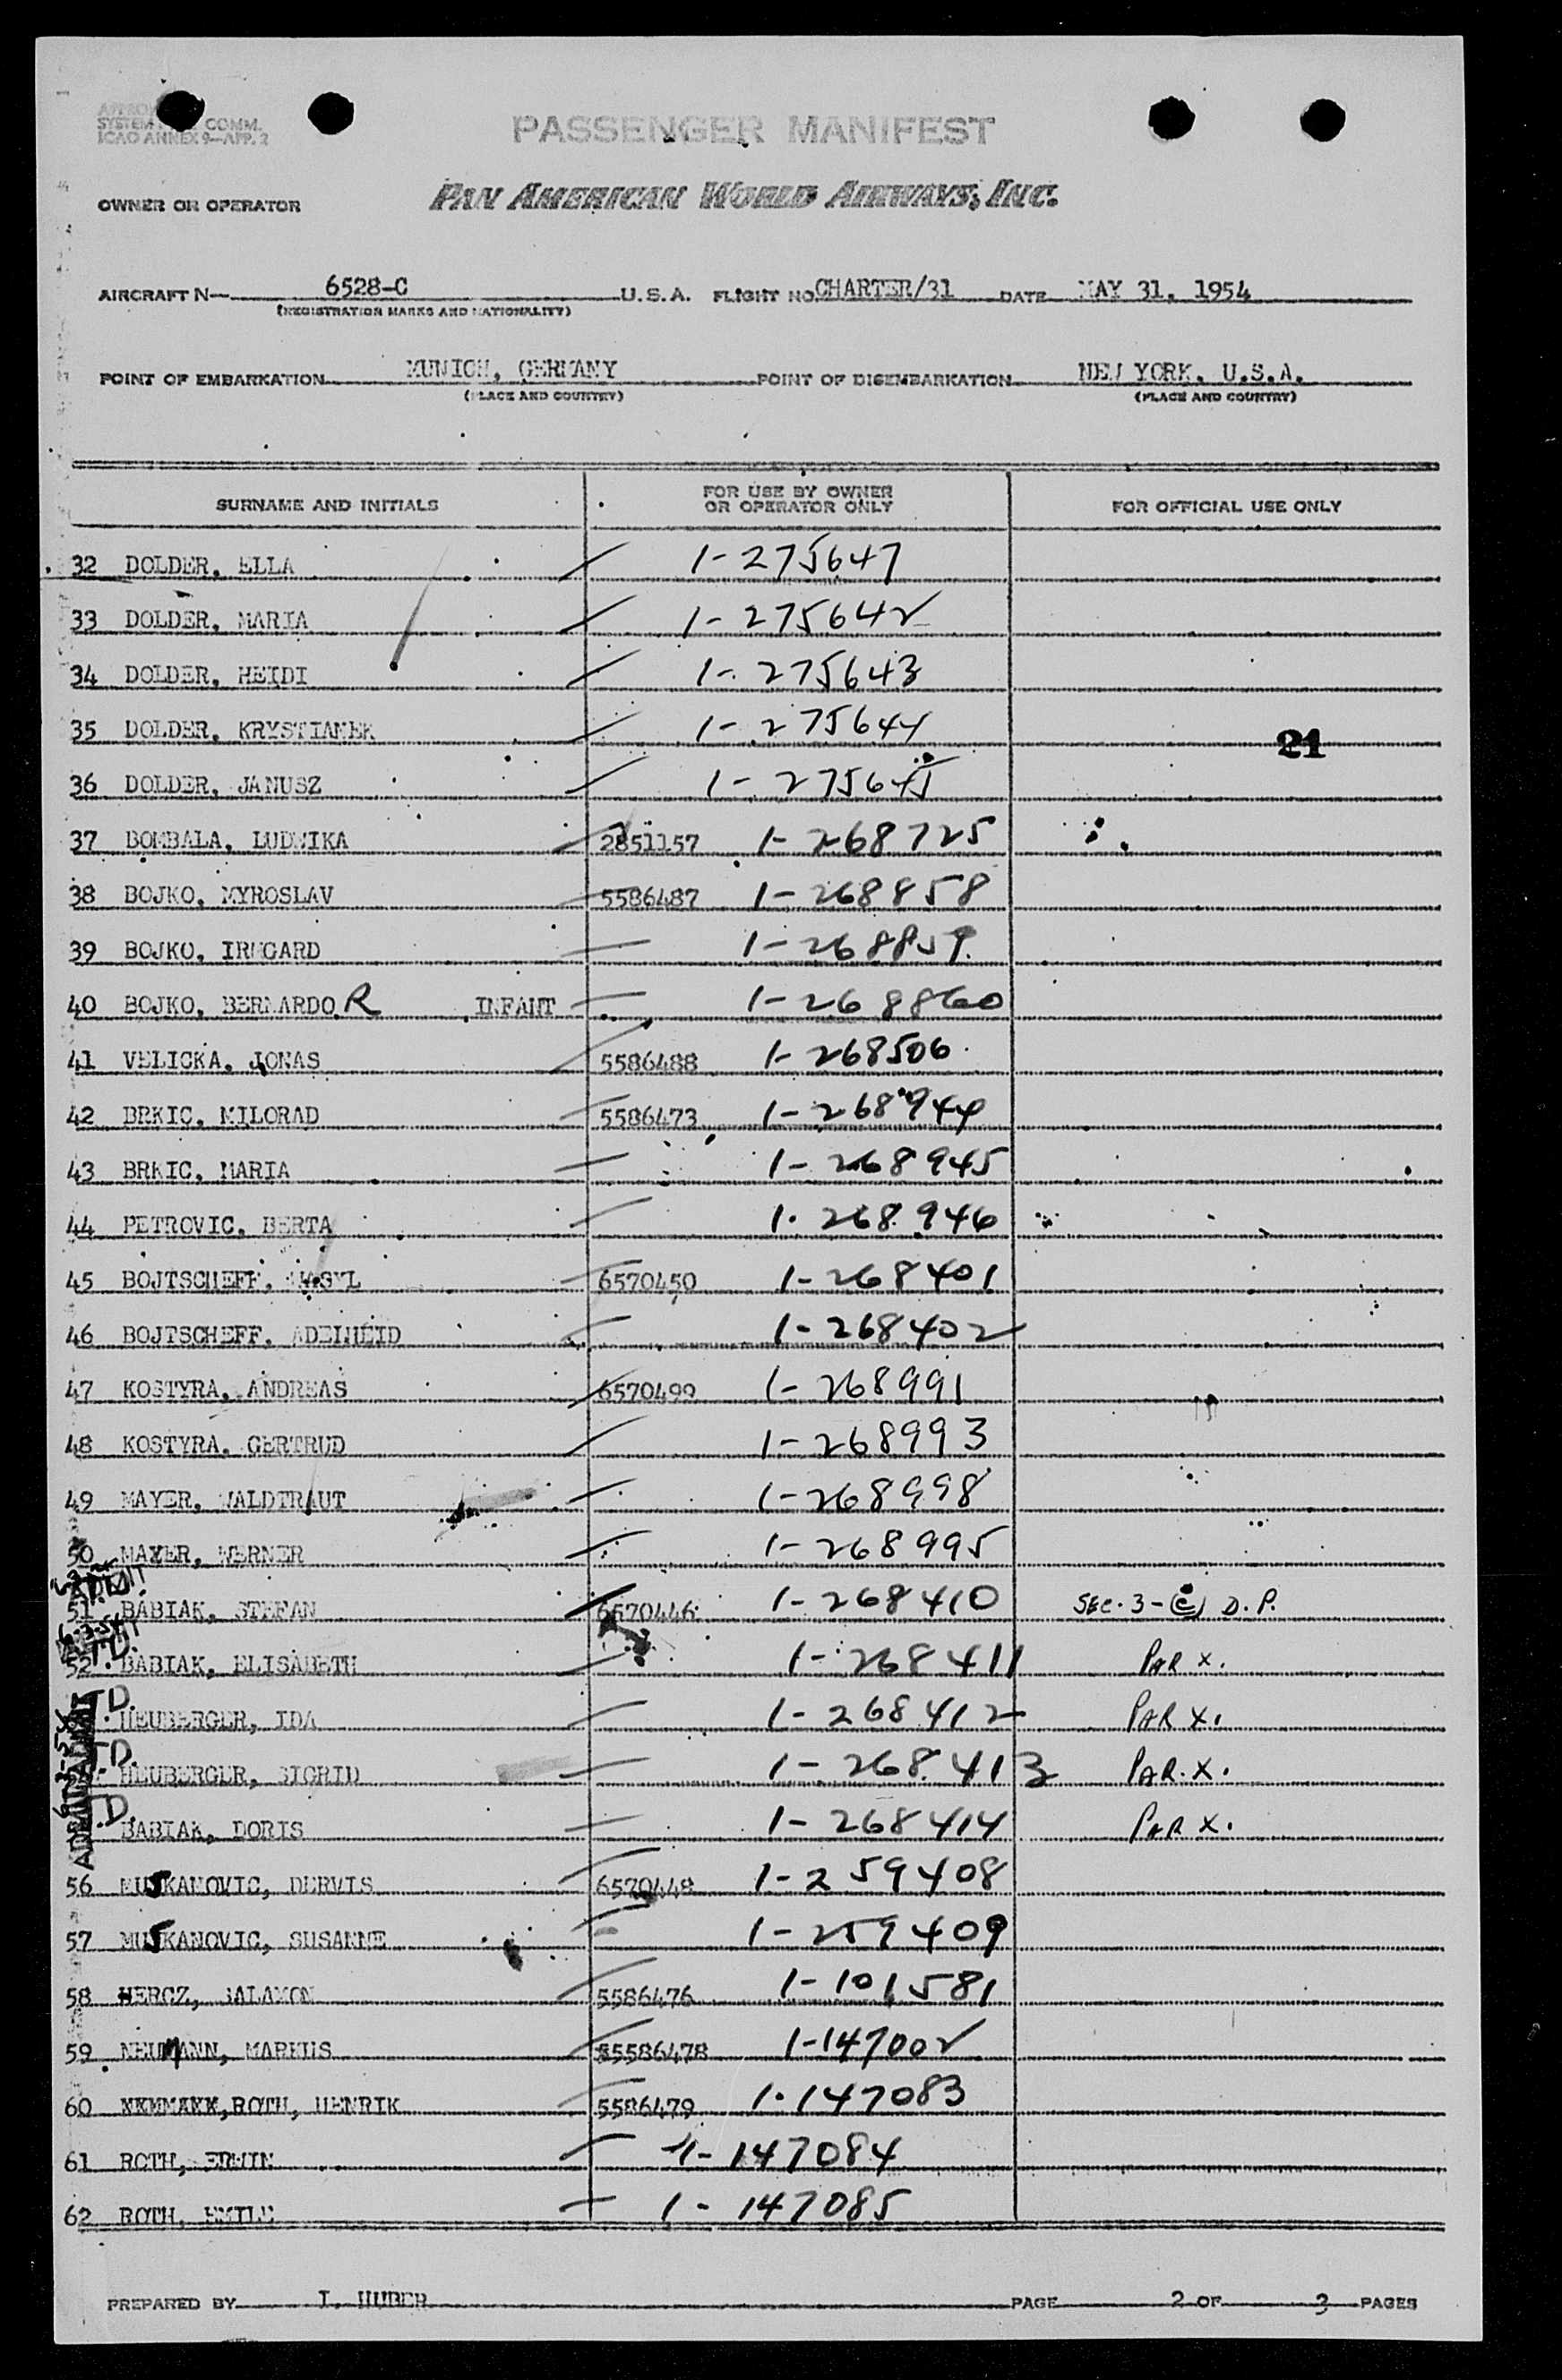 SYSTEM COMM.
ICAO ANNEX 9—APP. 2
PASSENGER MANIFEST
OWNER OR OPERATOR PAN AMERICAN WORLD AIRWAYS, INC.
AIRCRAFT N— 6528-C U.S.A. FLIGHT NO. CHARTER/31 DATE MAY 31, 1954
(REGISTRATION MARKS AND NATIONALITY)
POINT OF EMBARKATION MUNICH, GERMANY POINT OF DISEMBARKATION NEW YORK, U.S.A.
(PLACE AND COUNTRY) (PLACE AND COUNTRY)
SURNAME AND INITIALS FOR USE BY OWNER OR OPERATOR ONLY FOR OFFICIAL USE ONLY
32 DOLDER, ELLA 1-275647
33 DOLDER, MARIA 1-275642
34 DOLDER, HEIDI 1-275643
35 DOLDER, KRYSTIANEK 1-275644
21
36 DOLDER, JANUSZ 1-275645
37 BOMBALA, LUDWIKA 2851157 1-268725
38 BOJKO, MYROSLAV 5586487 1-268858
39 BOJKO, IRMGARD 1-268859
40 BOJKO, BERNARDO R INFANT 1-268860
41 VELICKA, JONAS 5586488 1-268506
42 BRKIC, MILORAD 5586473 1-268944
43 BRKIC, MARIA 1-268945
44 PETROVIC, BERTA 1-268946
45 BOJTSCHEFF, 6570450 1-268401
46 BOJTSCHEFF, ADELHEID 1-268402
47 KOSTYRA, ANDREAS 6570499 1-268991
48 KOSTYRA, GERTRUD 1-268993
49 MAYER, WALDTRAUT 1-268998
50 MAYER, WERNER 1-268995
51 BABIAK, STEFAN 6570446 1-268410 SEC. 3-(C) D.P.
52 T.D. BABIAK, ELISABETH 1-268411 PAR X.
T.D. HEUBERGER, IDA 1-268412 PAR X.
T.D. HEUBERGER, SIGRID 1-268413 PAR. X.
T.D. BABIAK, DORIS 1-268414 PAR X.
56 MUJKANOVIC, DERVIS 6570448 1-259408
57 MUJKANOVIC, SUSANNE 1-259409
58 HERCZ, SALAMON 5586476 1-101581
59 NEUMANN, MARKUS 5586478 1-147002
60 ROTH, HENRIK 5586479 1-147083
61 ROTH, ERWIN 1-147084
62 ROTH, EMILE 1-147085
PREPARED BY I. HUBER PAGE 2 OF 3 PAGES